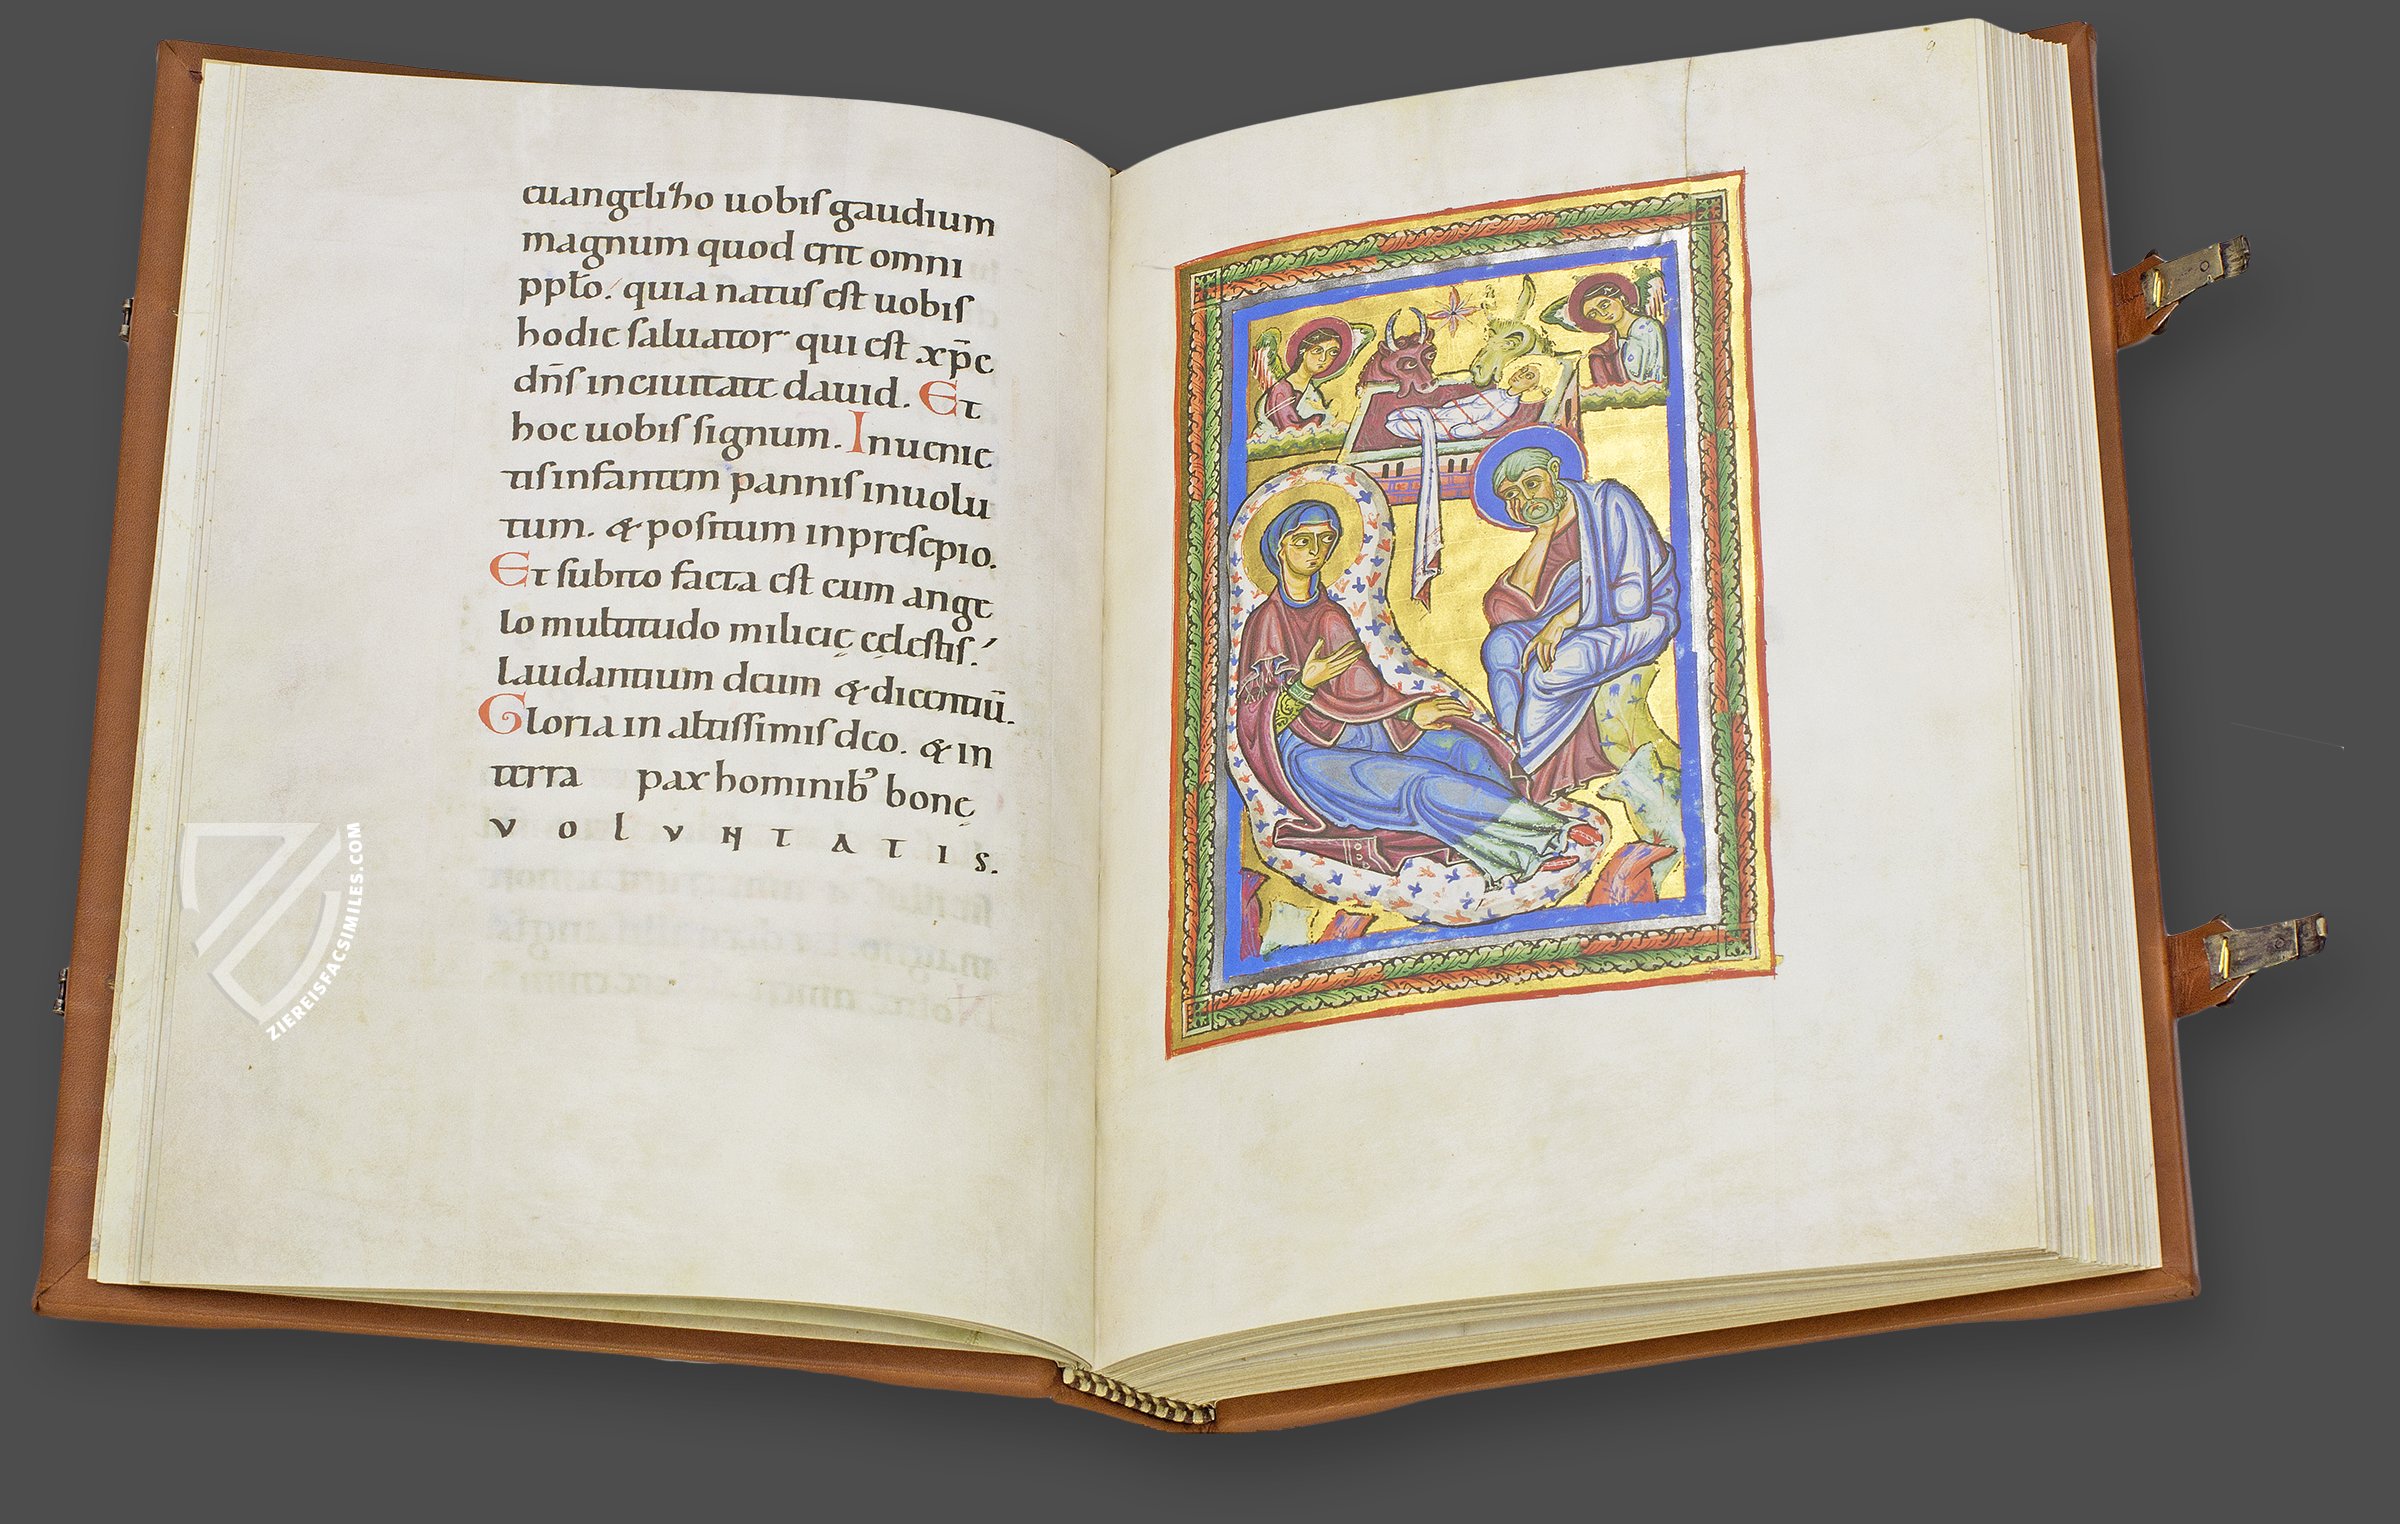 euangelizo uobiſ gaudium
magnum quod erit omni
ppło. quia natuſ eſt uobiſ
hodie ſaluator qui eſt xp̄c
dn̄ſ inciuitate dauid. Et
hoc uobiſ ſignum. Inuenie
tiſ infantem panniſ inuolu
tum. & poſitum inpreſepio.
Et ſubito facta eſt cum ange
lo multitudo milicię cęleſtiſ.
laudantium deum & dicentiū.
Gloria in altiſſimiſ deo. & in
terra pax hominib; bonę
VOLVNTATIS.
9
ZIEREISFACSIMILES.COM